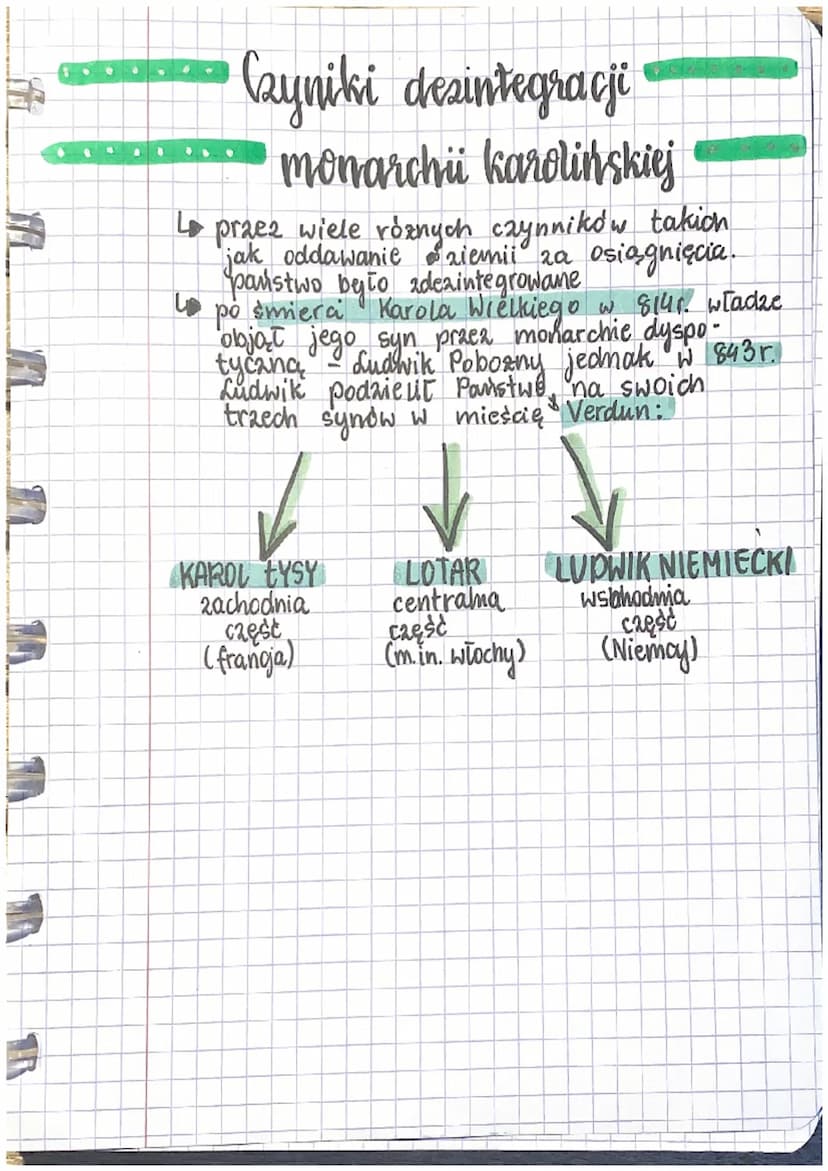 Czyniki dezintegracji
monarchii karolińskiej
↳ przez wiele różnych czynników takich
jak oddawanie ziemii za osiągnięcia.
państwo było zdezintegrowane
↳ po śmierci Karola Wielkiego w 814r. władze
objął jego syn przez monarchie dyspo-
tyczną - Ludwik Pobożny jednak w 843r.
Ludwik podzielił Państwo na swoich
trzech synów w mieście Verdun:
KAROL ŁYSY
zachodnia
część
(francja)
LOTAR
centralna
część
(m.in. włochy)
LUDWIK NIEMIECKI
wschodnia
część
(Niemcy)